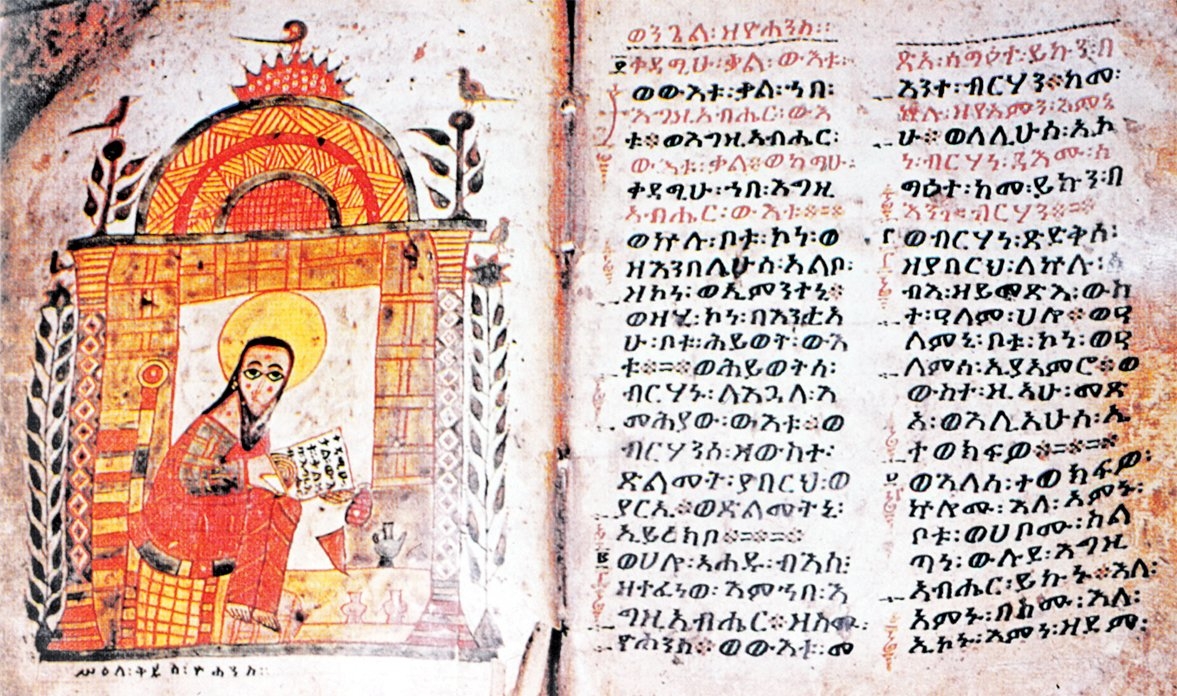 ሥዕለ፡ቅዱስ፡ዮሐንስ።
ወንጌል፡ዘዮሐንስ።
፩ቀዳሚሁ፡ቃል፡ውእቱ፡
ወውእቱ፡ቃል፡ኀበ፡
እግዚአብሔር፡ውእ
ቱ፨ወእግዚአብሔር፡
ውእቱ፡ቃል፨ወከማሁ፡
ቀዳሚሁ፡ኀበ፡እግዚ
አብሔር፡ውእቱ፨=፨
ወኵሉ፡ቦቱ፡ኮነ፡ወ
ዘእንበሌሁሰ፡አልቦ፡
ዘኮነ፡ወኢምንተኒ፨
ወዘሂ፡ኮነ፡በእንቲአ
ሁ፡ቦቱ፡ሕይወት፡ውእ
ቱ፨=፨ወሕይወትሰ፡
ብርሃኑ፡ለእጓለ፡እ
መሕያው፡ውእቱ፨ወ
ብርሃንሰ፡ዘውስተ፡
ጽልመት፡ያበርህ፡ወ
ያርኢ፨ወጽልመትኒ፡
ኢይረክቦ፨=፨=፨
ወሀሎ፡አሐዱ፡ብእሲ፡
ዘተፈነወ፡እምኀበ፡እ
ግዚአብሔር፨ዘስሙ፡
ዮሐንስ፨ወውእቱ፡መ
ጽአ፡ሰማዕተ፡ይኩን፡በ
እንተ፡ብርሃን፡ከመ፡
ኵሉ፡ዘየአምን፡እምኔ
ሁ፨ወለሊሁሰ፡ኢኮ
ነ፡ብርሃነ፡ዳእሙ፡ሰ
ማዕተ፡ከመ፡ይኩን፡በ
እንተ፡ብርሃን፨=፨
ወብርሃነ፡ጽድቅሰ፡
ዘያበርህ፡ለኵሉ፡ሰ
ብእ፡ዘይመጽእ፡ውስ
ተ፡ዓለም፡ሀሎ፨ወዓ
ለምኒ፡ቦቱ፡ኮነ፡ወዓ
ለምሰ፡ኢያእመሮ፨ወ
ውስተ፡ዚአሁ፡መጽ
አ፡ወእሊአሁሰ፡ኢ
ተወክፍዎ፨=፨=፨
ወእለሰ፡ተወክፍዎ፡
ኵሎሙ፡እለ፡አምኑ፡
ቦቱ፡ወሀቦሙ፡ስል
ጣነ፡ውሉደ፡እግዚ
አብሔር፡ይኩኑ፨እለ፡
አምኑ፡በስሙ፡እለ፡
ኢኮኑ፡እምነ፡ዘደም፡